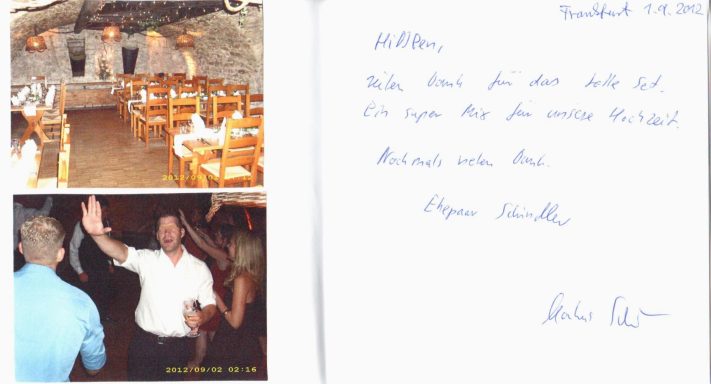 2012/09/02
2012/09/02 02:16
Frankfurt 1.9.2012
vielen Dank für das tolle Set.
Ein super Mix für unsere Hochzeit.
Nochmals vielen Dank.
Ehepaar Schindler